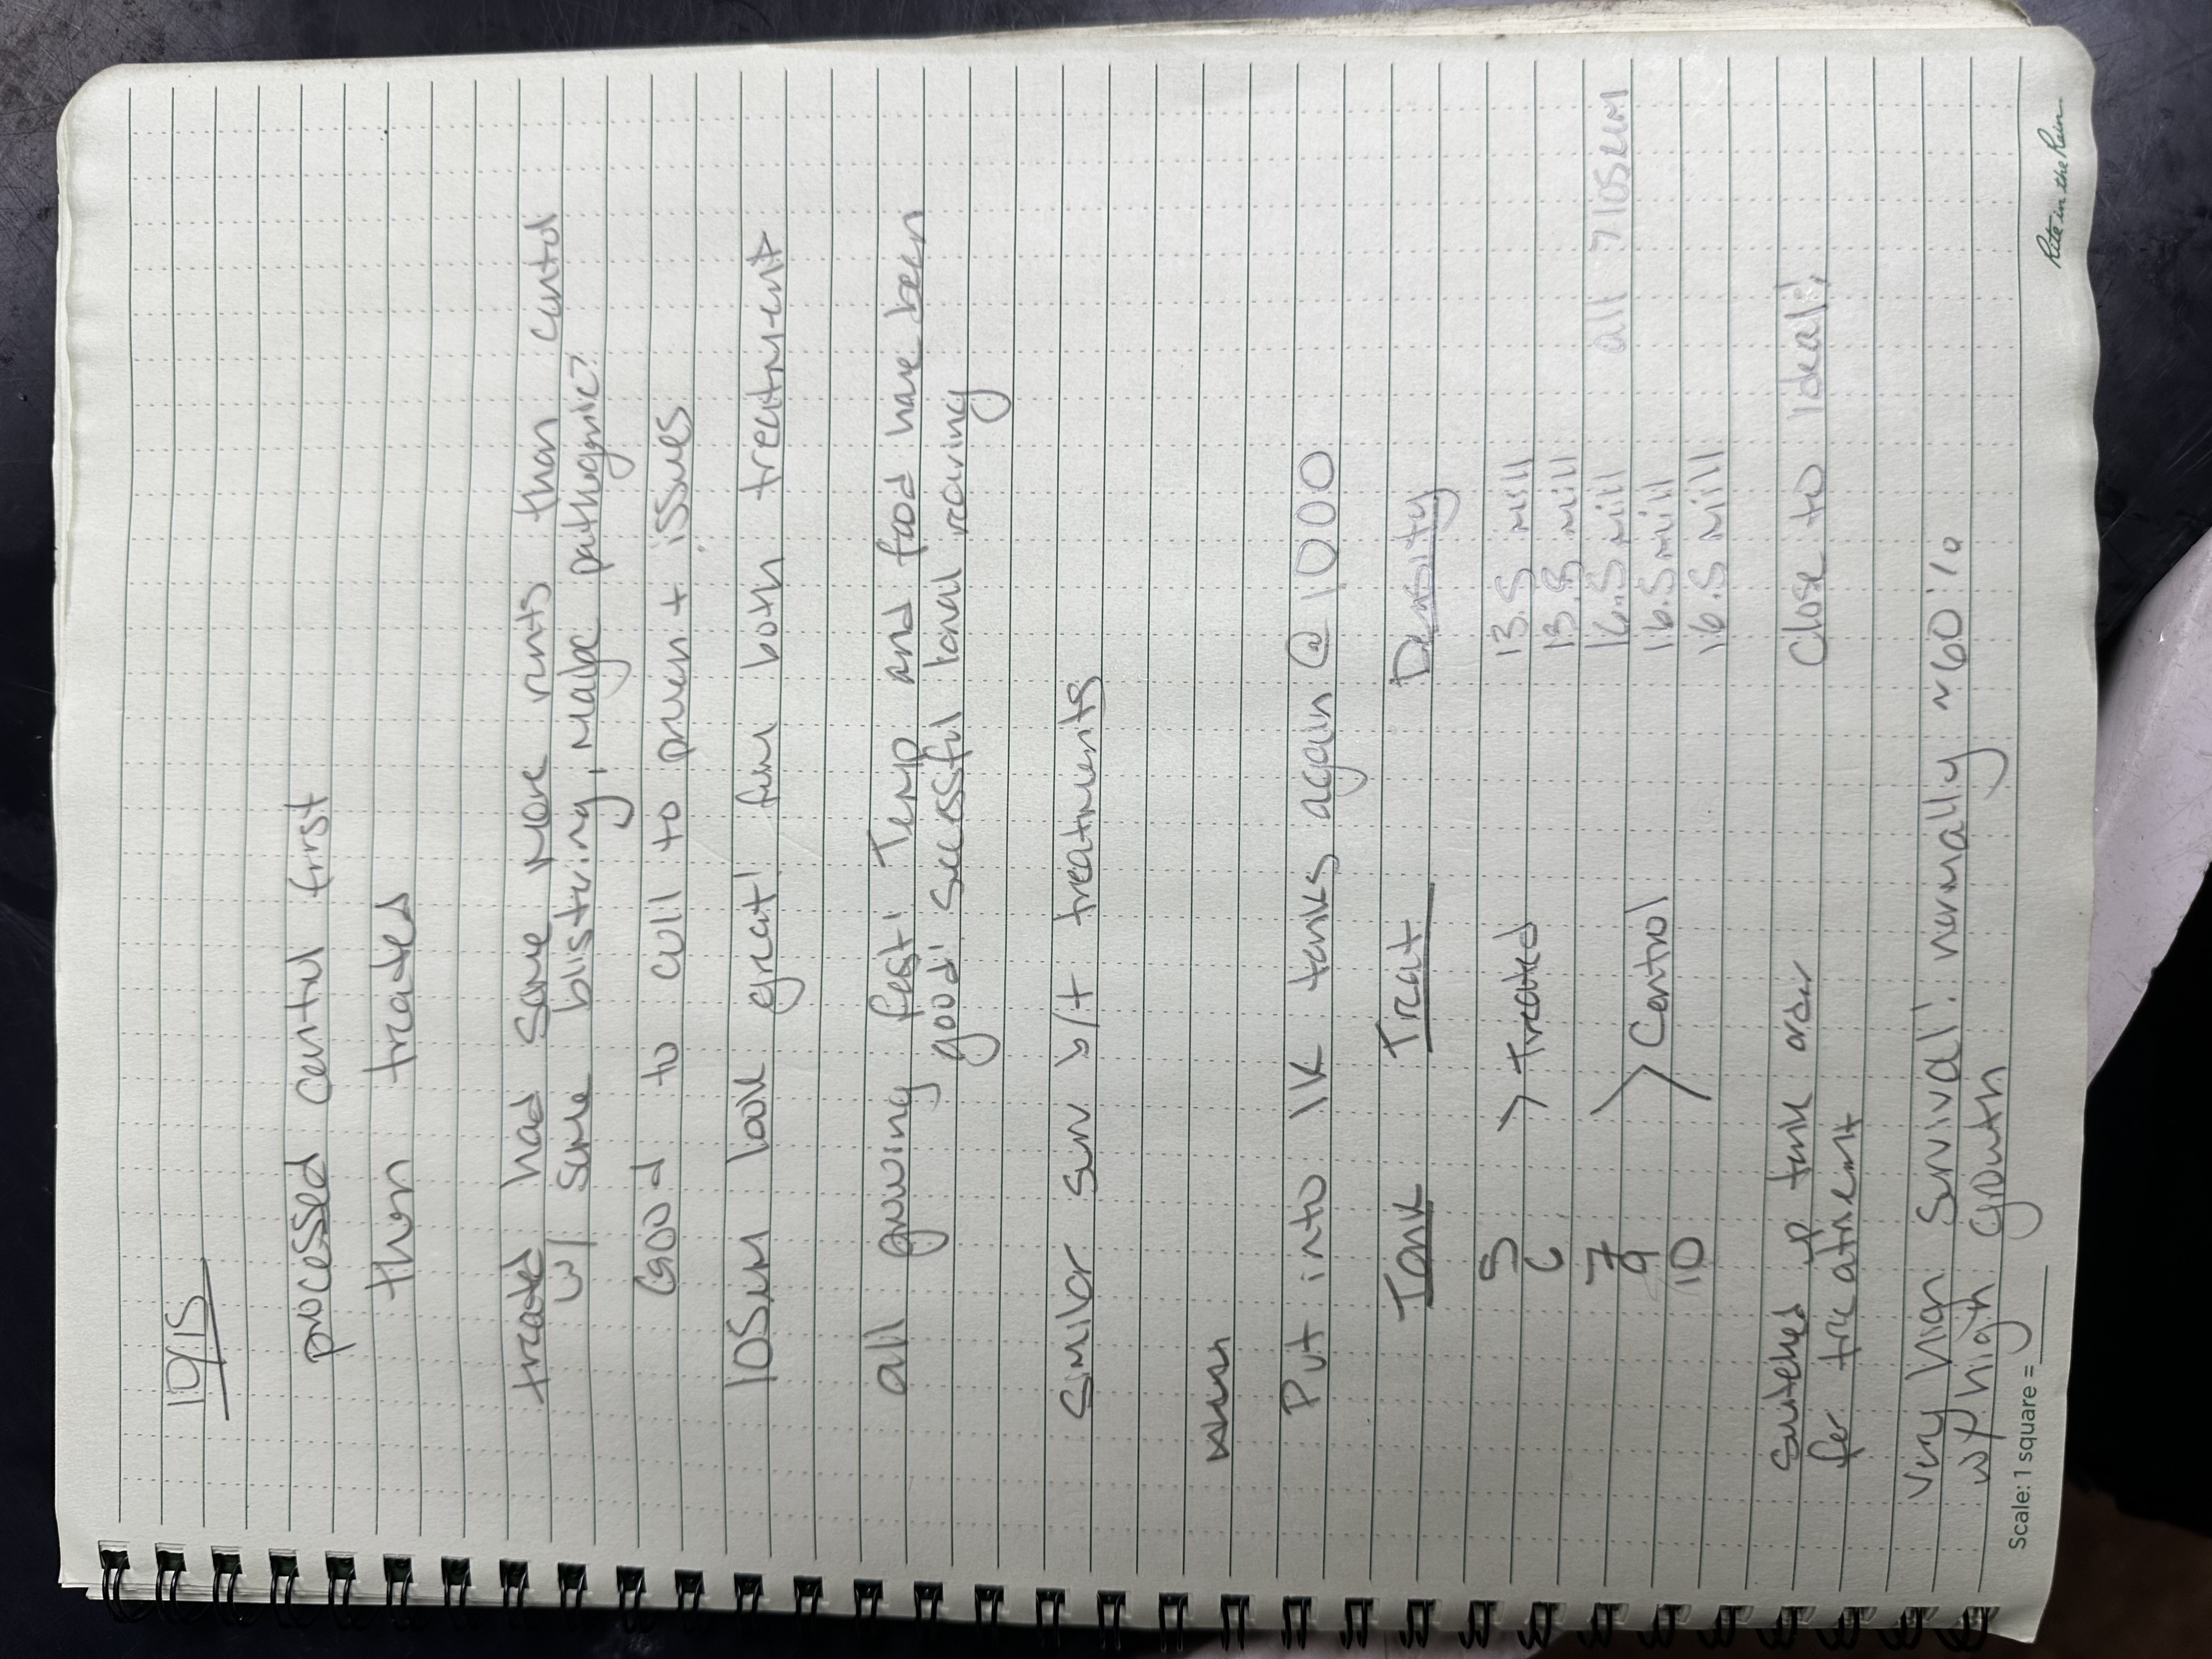 10/15
processed control first
then treated
treated had some more runts than control
w/ some blistering, maybe pathogenic?
Good to cull to prevent issues
105um look great! from both treatment
all growing fast! Temp and food have been
good! Successful larval rearing
Similar surv. b/t treatments
Put into 1K tanks again @ 1000
Tank Treat Density
5 13.5 mill
> Treated
6 13.5 mill
7 16.5 mill all >105um
9 > Control 16.5 mill
10 16.5 mill
Switched up tank order Close to ideal!
for treatment
Very high survival! normally ~60%
w/ high growth
Scale: 1 square =
Rite in the Rain